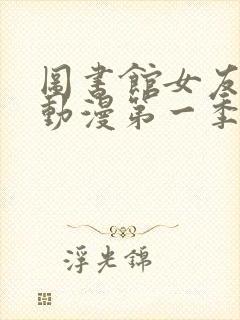 圖書館女友
動漫第一季
浮光錦